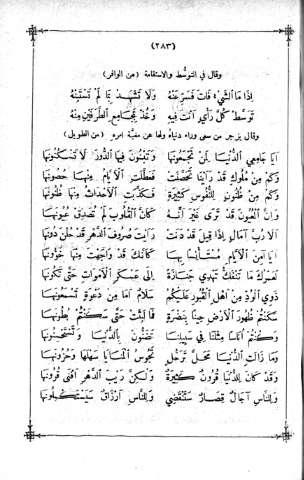 (٢٨٣)
وقال في التوسُّط والاستقامة (من الوافر)
إِذَا مَا الشَّيْءُ فَاتَ فَسَرِّ عَنْهُ وَلَا تَشْهَدْ بِمَا لَمْ تَسْتَبِنْهُ
تَوَسَّطْ كُلَّ رَأْيٍ أَنْتَ فِيهِ وَخُذْ بِمَجَامِعِ الطَّرَفَيْنِ مِنْهُ
وقال يزجر من سعى وراء دنياهُ ولها عن منيَّة امرهِ (من الطويل)
أَيَا جَامِعِي الدُّنْيَا لِمَنْ تَجْمَعُونَهَا وَتَبْنُونَ فِيهَا الدُّورَ لَا تَسْكُنُونَهَا
وَكَمْ مِنْ مُلُوكٍ قَدْ رَأَيْنَا تَحَصَّنَتْ فَعَطَّلَتِ الْأَيَّامُ مِنْهَا حُصُونَهَا
وَكَمْ مِنْ ظُنُونٍ لِلنُّفُوسِ كَثِيرَةٍ فَكَذَّبَتِ الْأَحْدَاثُ مِنْهَا ظُنُونَهَا
وَإِنَّ الْعُيُونَ قَدْ تَرَى غَيْرَ أَنَّهُ كَأَنَّ الْقُلُوبَ لَمْ تُصَدِّقْ عُيُونَهَا
أَلَا رُبَّ آمَالٍ إِذَا قِيلَ قَدْ دَنَتْ رَأَيْتَ صُرُوفَ الدَّهْرِ قَدْ حُلْنَ دُونَهَا
أَيَا آمِنَ الْأَيَّامِ مُسْتَأْنِسًا بِهَا كَأَنَّكَ قَدْ وَاجَهْتَ مِنْهَا خَؤُونَهَا
لَعَمْرُكَ مَا تَنْفَكُّ تَهْدِي جَنَازَةً إِلَى عَسْكَرِ الْأَمْوَاتِ حَتَّى تَكُونَهَا
ذَوِي الْوُدِّ مِنْ أَهْلِ الْقُبُورِ عَلَيْكُمُ سَلَامٌ أَمَا مِنْ دَعْوَةٍ تَسْمَعُونَهَا
سَكَنْتُمْ ظُهُورَ الْأَرْضِ حِينًا بِنَضْرَةٍ فَمَا لَبِثَتْ حَتَّى سَكَنْتُمْ بُطُونَهَا
وَكُنْتُمْ أُنَاسًا مِثْلَنَا فِي سَبِيلِنَا تَضُنُّونَ بِالدُّنْيَا وَتَسْتَحْسِنُونَهَا
وَمَا زَالَتِ الدُّنْيَا مَحَلَّ تَرَحُّلٍ تَجُوسُ الْمَنَايَا سَهْلَهَا وَحُزُونَهَا
وَقَدْ كَانَ لِلدُّنْيَا قُرُونٌ كَثِيرَةٌ وَلٰكِنَّ رَيْبَ الدَّهْرِ أَفْنَى قُرُونَهَا
وَلِلنَّاسِ آجَالٌ قِصَارٌ سَتَنْقَضِي وَلِلنَّاسِ أَرْزَاقٌ سَيَسْتَكْمِلُونَهَا